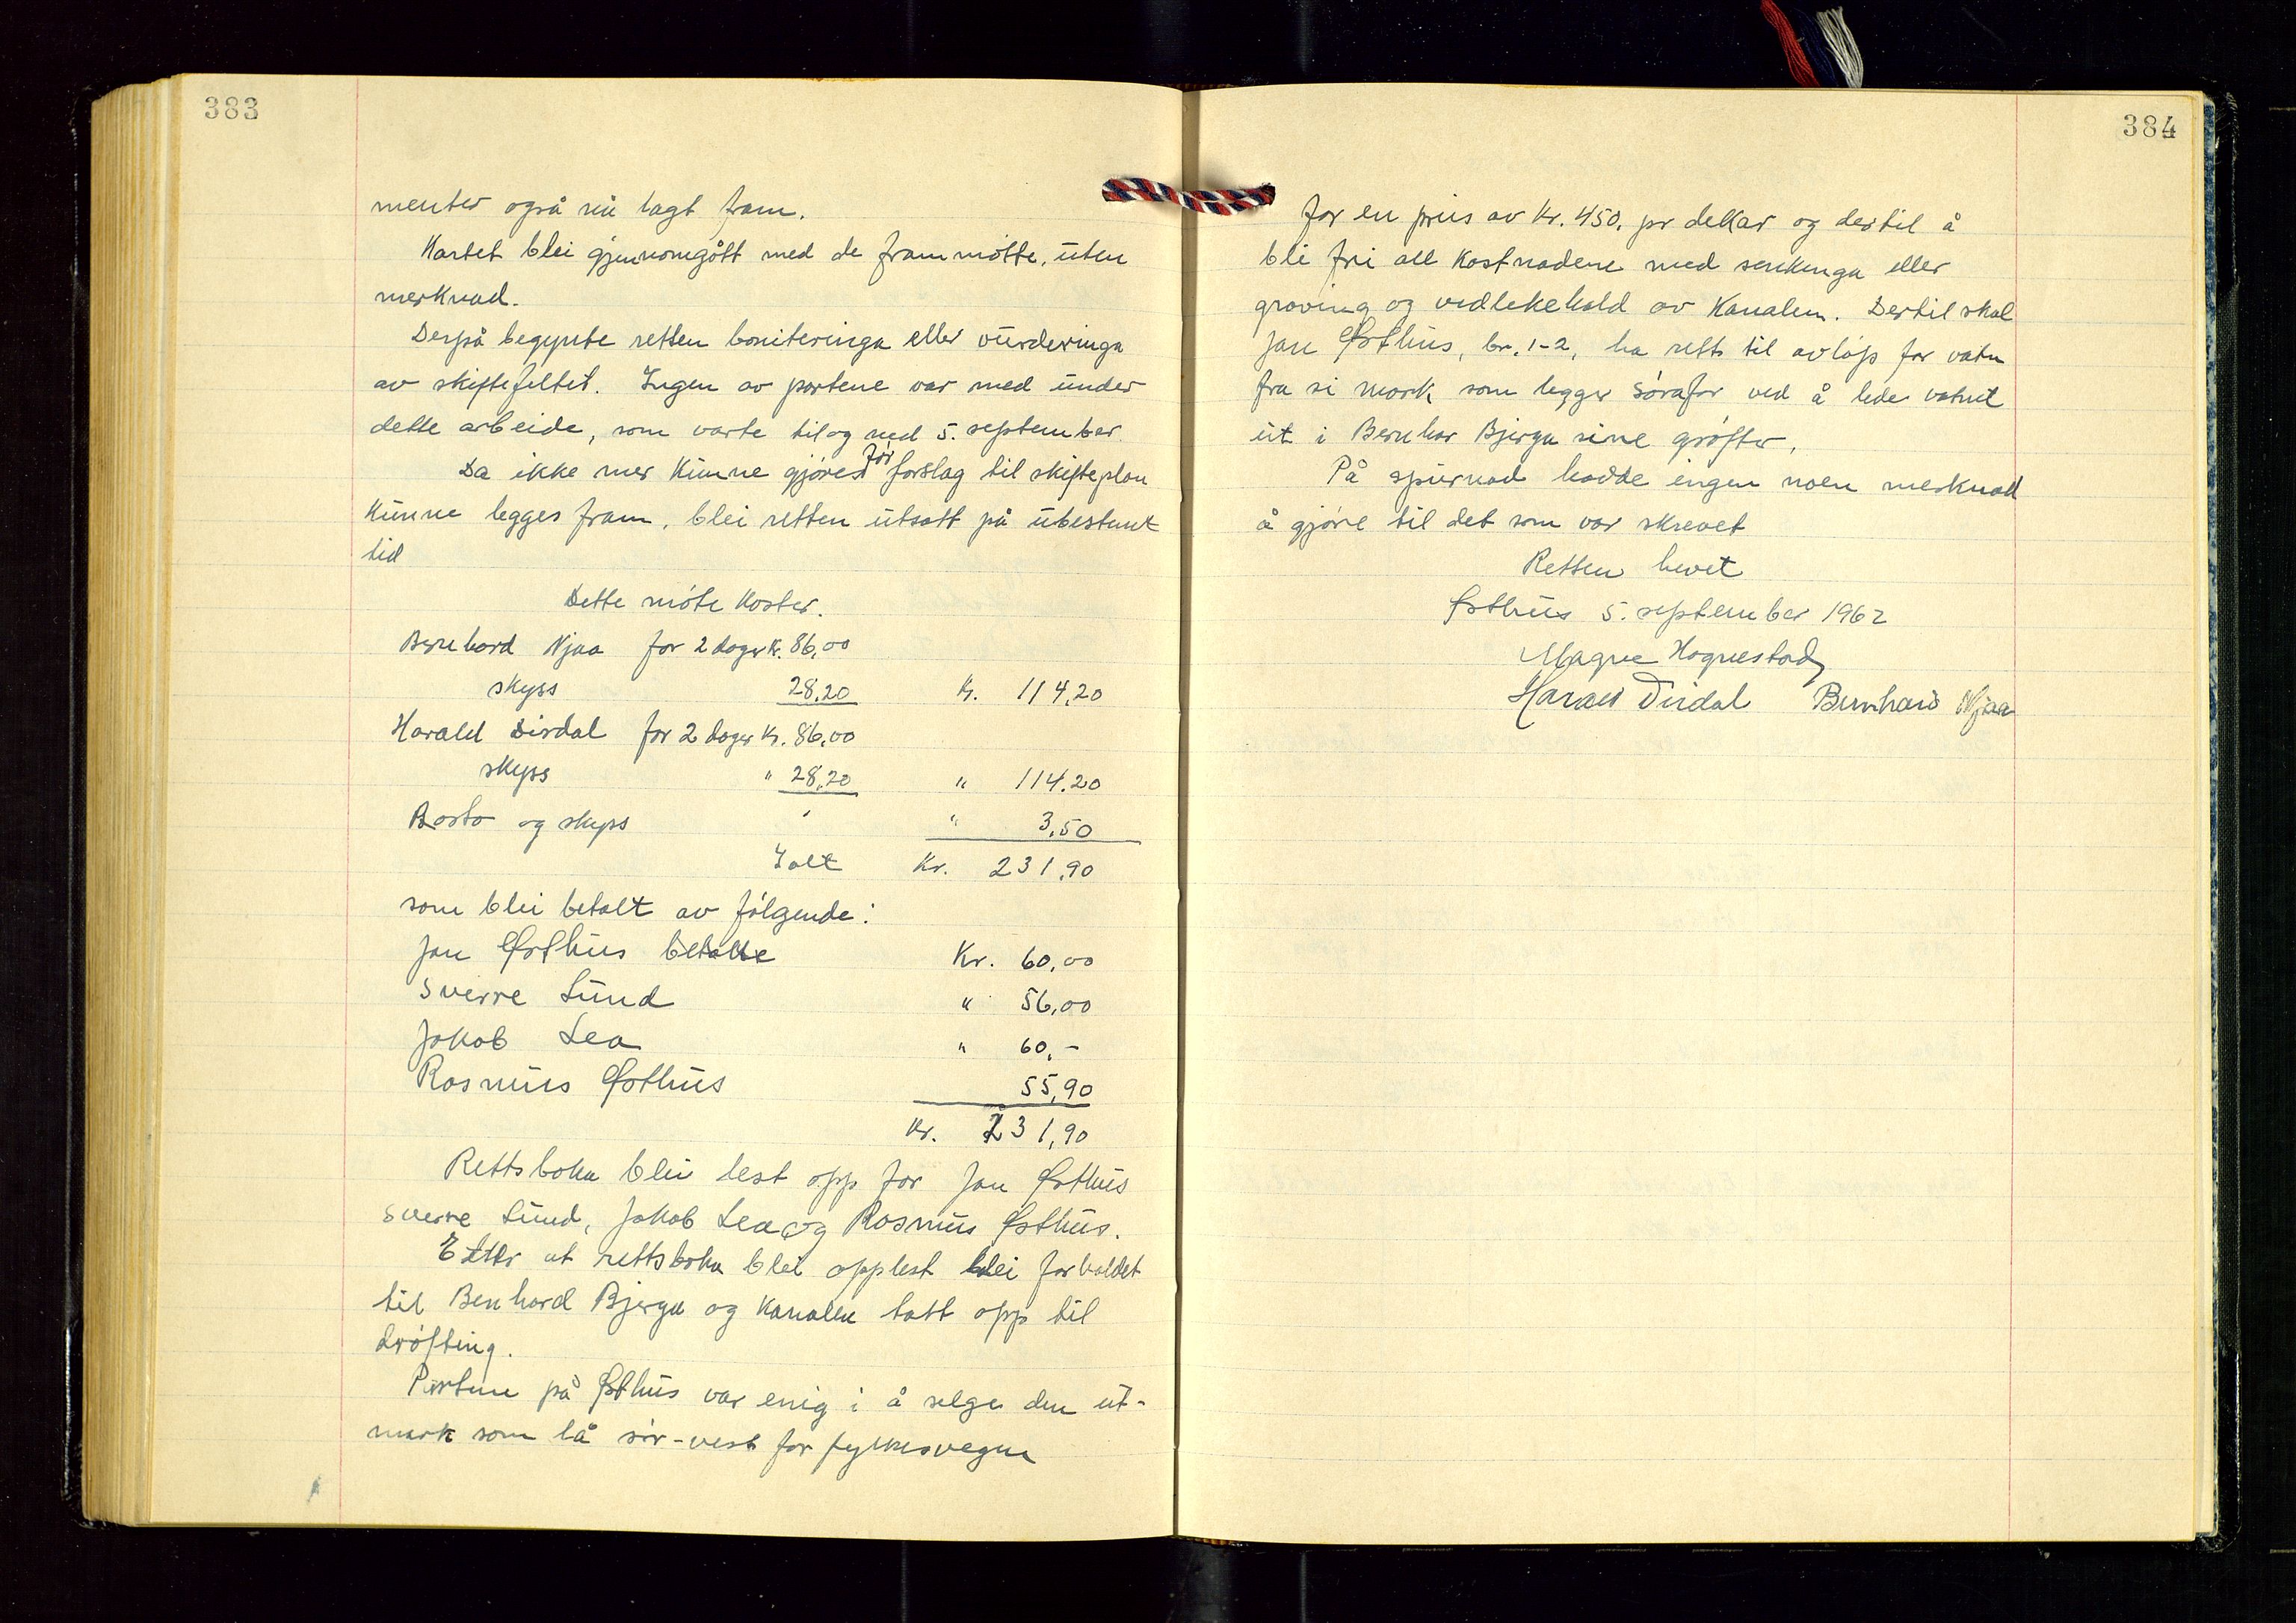 383
menter også nu lagt fram.
Kartet blei gjennomgått med de frammøtte, uten
merknad.
Derpå begynte retten boniteringa eller vurderinga
av skiftefeltet. Ingen av partene var med under
dette arbeide, som varte til og med 5. september.
Da ikke mer kunne gjøres før forslag til skifteplan
kunne legges fram, blei retten utsatt på ubestemt
tid
Dette møte koster.
Bernhard Njaa for 2 dager kr. 86,00
skyss 28,20 kr. 114,20
Harald Dirdal for 2 dager kr. 86,00
skyss " 28,20 " 114.20
Porto og skyss " 3,50
Ialt Kr. 231,90
som blei betalt av følgende:
Jan Østhus betalte Kr. 60,00
Sverre Lund " 56,00
Jakob Lea " 60,-
Rasmus Østhus 55,90
Kr. 231,90
Rettsboka blei lest opp for Jan Østhus
Sverre Lund, Jakob Lea og Rasmus Østhus.
Etter at rettsboka blei opplest blei forholdet
til Benhard Bjerga og kanalen tatt opp til
drøfting.
Partene på Østhus var enig i å selge den ut-
mark som lå sør-vest for fylkesvegen
384
for en pris av kr. 450, pr dekar og dertil å
bli fri all kostnadene med senkinga eller
graving og vedlikehold av kanalen. Dertil skal
Jan Østhus, br. 1-2, ha retts til avløp for vatn
fra si mark som legger sørafor ved å lede vatnet
ut i Bernhar Bjerga sine grøfter.
På spurnad hadde ingen noen merknad
å gjøre til det som var skrevet
Retten hevet
Østhus 5. september 1962
Magne Hognestad
Harald Dirdal Bernhard Njaa